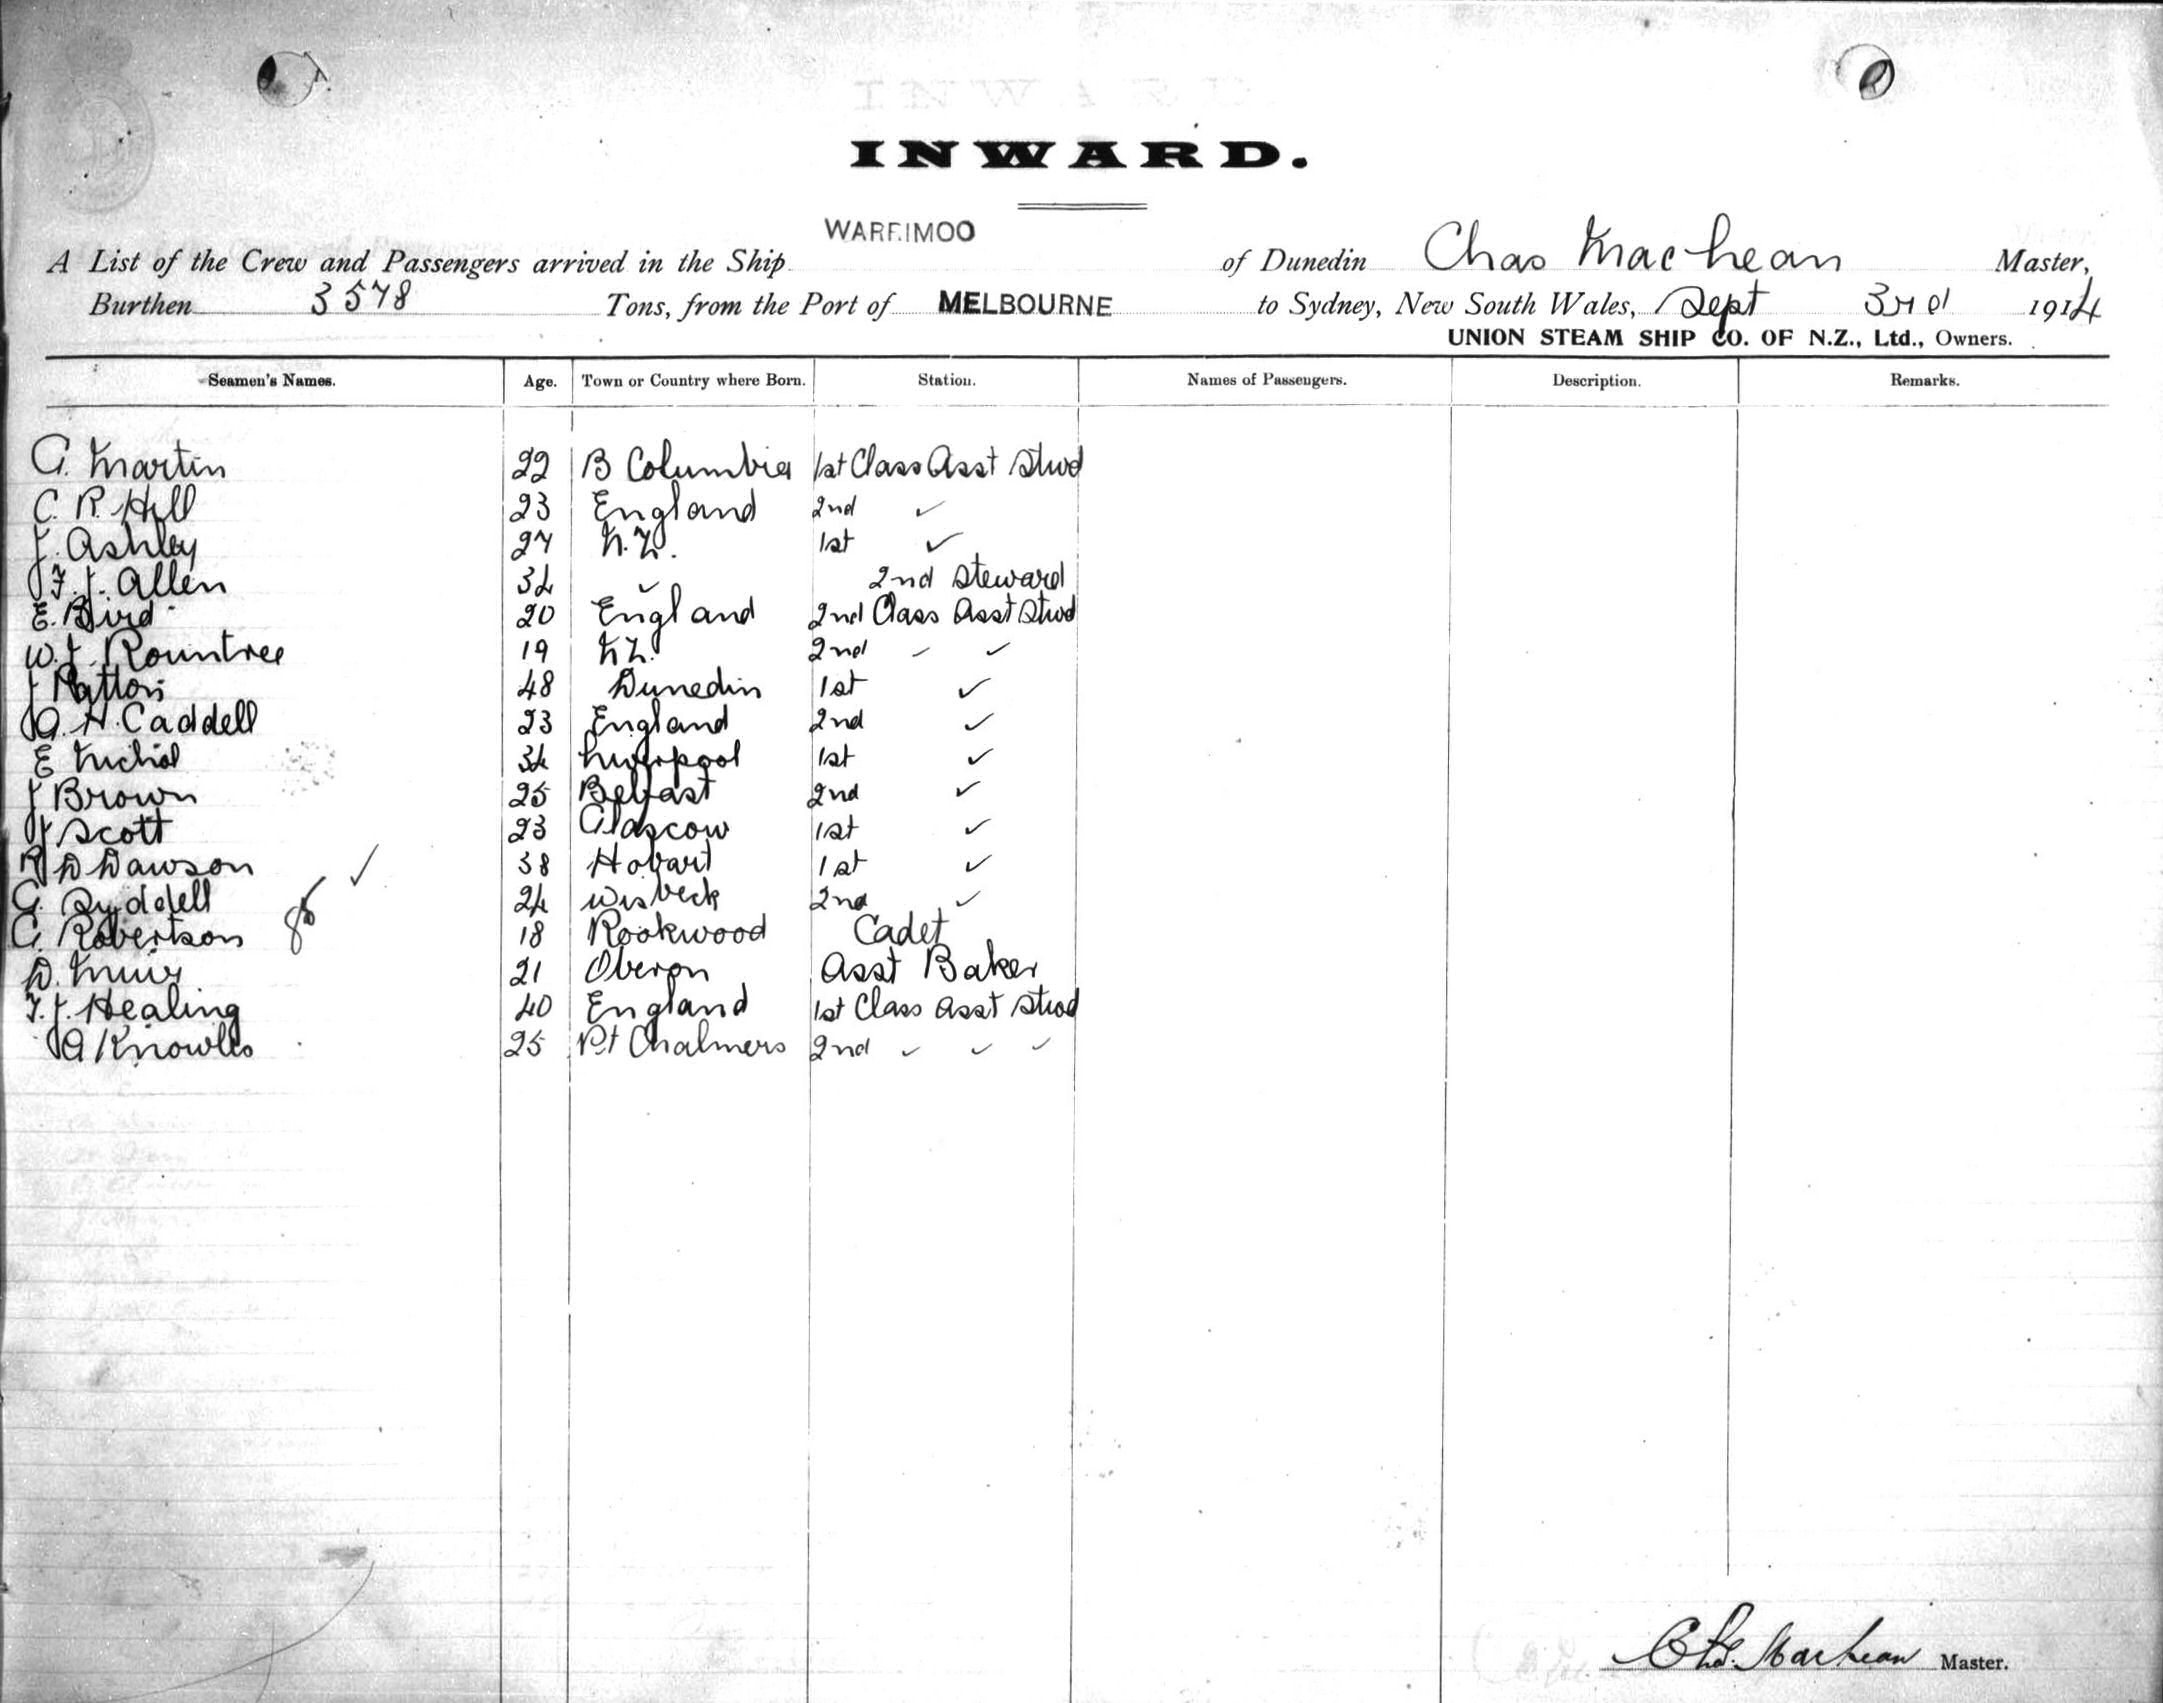 INWARD.
WARRIMOO
A List of the Crew and Passengers arrived in the Ship of Dunedin Chas MacLean Master,
Burthen 3578 Tons, from the Port of MELBOURNE to Sydney, New South Wales, Sept 3rd 1914
UNION STEAM SHIP CO. OF N.Z., Ltd., Owners.
Seamen's Names. Age. Town or Country where Born. Station. Names of Passengers. Description. Remarks.
G. Martin 22 B Columbia 1st Class Asst Stwd
C. R. Hill 23 England 2nd ✓
J. Ashley 27 N.Z. 1st ✓
F. J. Allen 34 ✓ 2nd Steward
E. Bird 20 England 2nd Class Asst Stwd
W. J. Rountree 19 NZ. 2nd ✓ ✓
J Patton 48 Dunedin 1st ✓
A. H. Caddell 23 England 2nd ✓
E Nichol 34 Liverpool 1st ✓
J Brown 25 Belfast 2nd ✓
J Scott 23 Glascow 1st ✓
R D Dawson ✓ 38 Hobart 1st ✓
G. 24 Wisbeck 2nd ✓
G. Robertson 18 Rookwood Cadet
D. Muir 21 Oberon Asst Baker
F. J. Healing 40 England 1st Class Asst Stwd
A Knowles 25 Pt Chalmers 2nd ✓ ✓ ✓
Chs. MacLean Master.